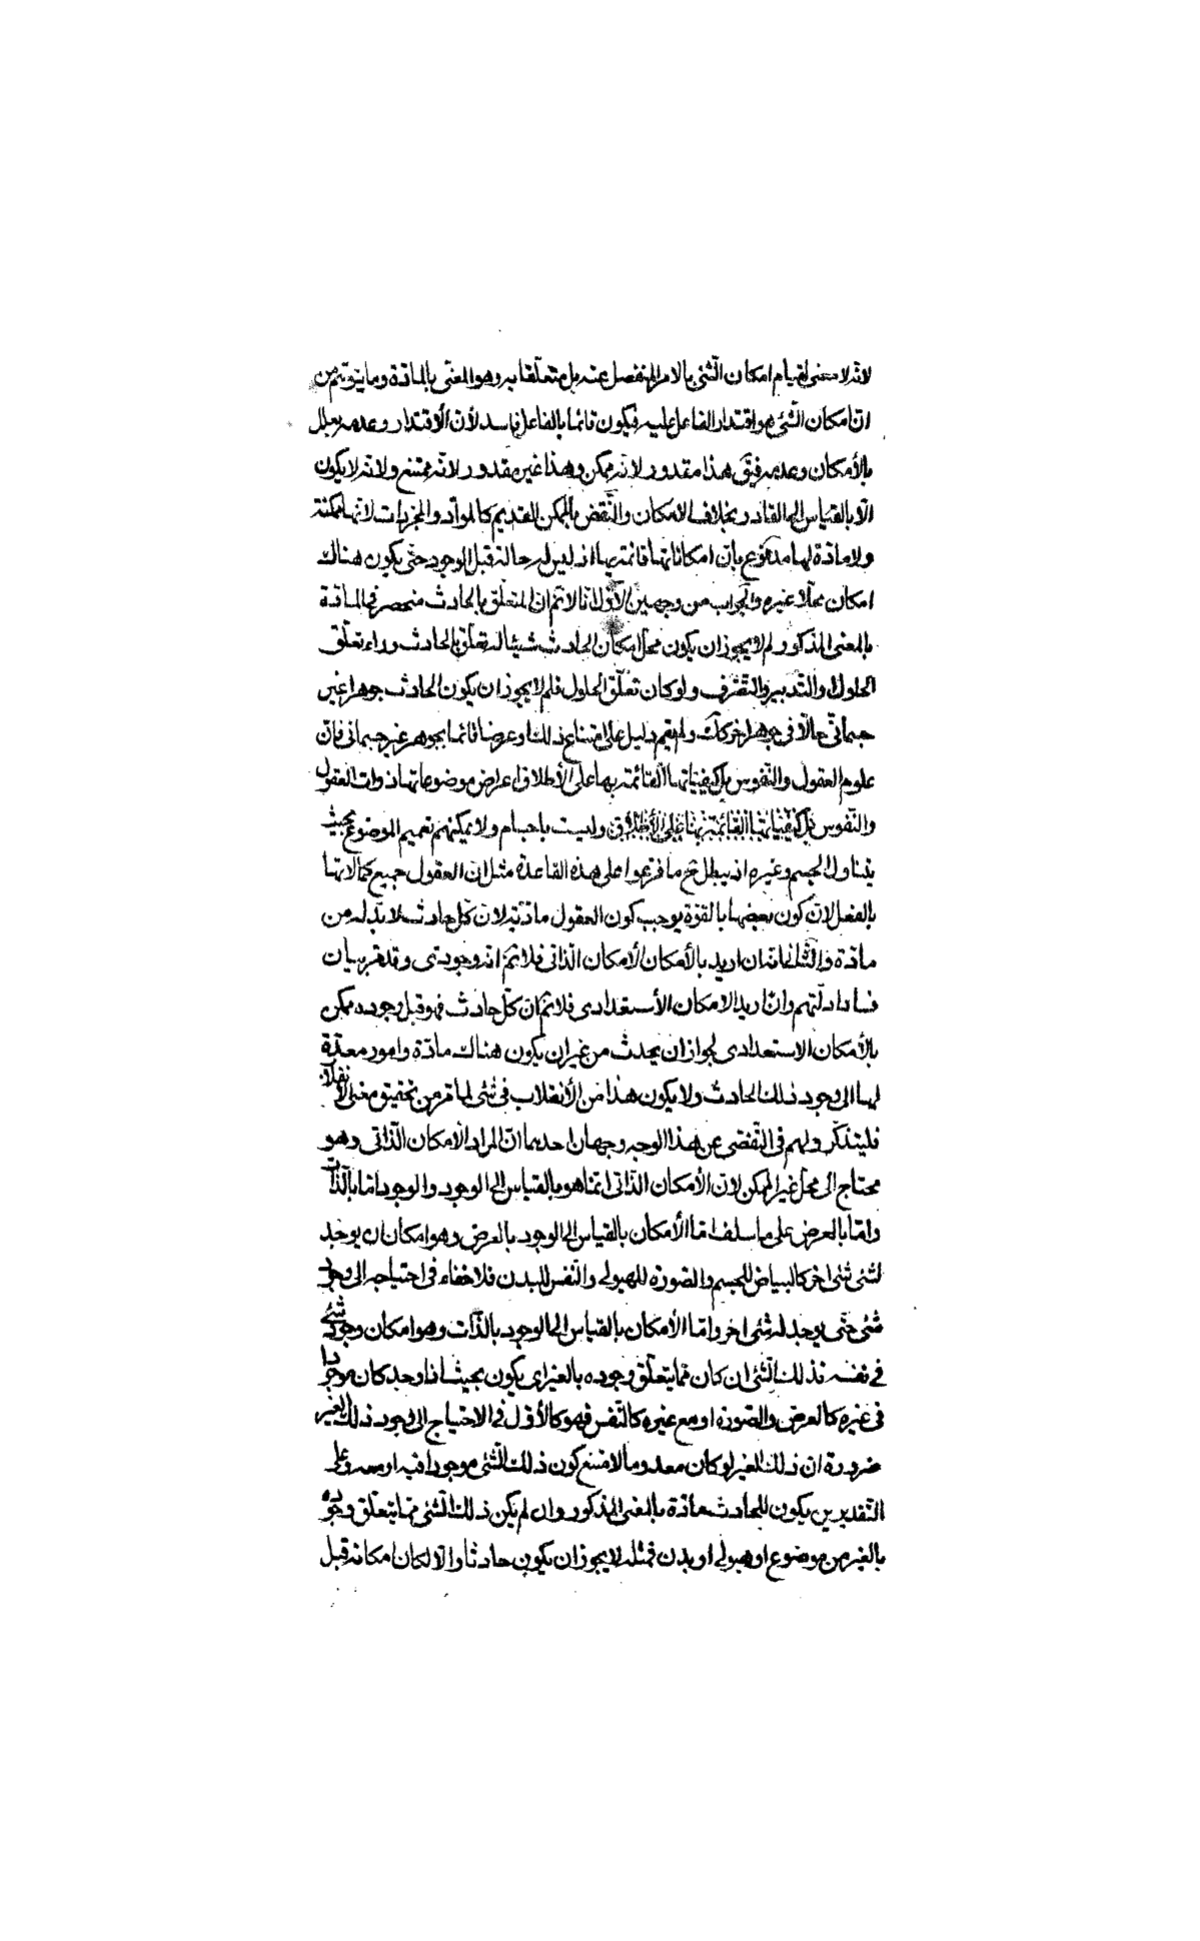 لانه لا معنى لقيام امكان الشئ بالامر المنفصل عنه بل متعلقا به وهو المعنى بالمادة وما يتوهم من
ان امكان الشئ هو اقتدار الفاعل عليه فيكون قائما بالفاعل فاسد لأن الأقتدار وعدمه يعلل
بالأمكان وعدمه فيق هذا مقدور لانه ممكن وهذا غير مقدور لانه ممتنع ولانه لا يكون
الا بالقياس الى القادر بخلاف الامكان والنقض بالممكن القديم كالمواد والمجردات لانها ممكنة
ولا مادة لها مدفوع بان امكاناتها قائمة بها اذ ليس له حالة قبل الوجود حتى يكون هناك
امكان محلا غيره والجواب من وجهين الأول انا لا نم ان المتعلق بالحادث منحصر في المادة
بالمعنى المذكور لم لا يجوز ان يكون محل امكان الحادث شيئا له تعلق بالحادث وراء تعلق
الحلول والتدبير والتصرف ولو كان تعلق الحلول فلم لا يجوز ان يكون الحادث جوهرا غير
جسمانى حالا في جوهر اخر كك ولم يقم دليل على امتناع ذلك او عرضا قائما بجوهر غير جسمانى فان
علوم العقول والنفوس بل كيفياتها القائمة بها على الأطلاق اعراض موضوعاتها ذوات العقول
والنفوس بل كيفياتها القائمة بها على الأطلاق وليست باجسام ولا يمكنهم تعميم الموضوع بحيث
يتناول الجسم وغيره اذ يبطل ح ما فرعوا على هذه القاعدة مثل ان العقول جميع كمالاتها
بالفعل لان كون بعضها بالقوة يوجب كون العقول مادية لان كل حادث لا بد له من
مادة والثانى ان اريد بالأمكان الأمكان الذاتى فلا نم انه وجودى وقد مر بيان
فساد ادلتهم وان اريد الامكان الأستعدادى فلا نم ان كل حادث فهو قبل وجوده ممكن
بالأمكان الاستعدادى لجواز ان يحدث من غير ان يكون هناك مادة وامور معدة
لها الى وجود ذلك الحادث ولا يكون هذا من الأنقلاب في شئ لما مر من تحقيق معنى الانقلاب
فليتذكر ولهم في التفصى عن هذا الوجه وجهان احدهما ان المراد الامكان الذاتى وهو
محتاج الى محل غير الممكن لان الأمكان الذاتى انما هو بالقياس الى الوجود والوجود اما بالذات
واما بالعرض على ما سلف اما الأمكان بالقياس الى الوجود بالعرض وهو امكان ان يوجد
لشئ شئ اخر كالبياض للجسم والصورة للهيولى والنفس للبدن فلا خفاء في احتياجه الى وجود
شئ حتى يوجد له شئ اخر واما الأمكان بالقياس الى الوجود بالذات وهو امكان وجود شئ
في نفسه فذلك الشئ ان كان مما يتعلق وجوده بالغير اى يكون بحيث اذا وجد كان موجودا
في غيره كالعرض والصورة او مع غيره كالنفس فهو كالأول في الاحتياج الى وجود ذلك الغير
ضرورة ان ذلك الغير لو كان معدوما لامتنع كون ذلك الشئ موجودا فيه او معه وعلى
التقديرين يكون للحادث مادة بالمعنى المذكور وان لم يكن ذلك الشئ مما يتعلق وجوده
بالغير من موضوع او هيولى او بدن فمثله لا يجوز ان يكون حادثا والا لكان امكانه قبل